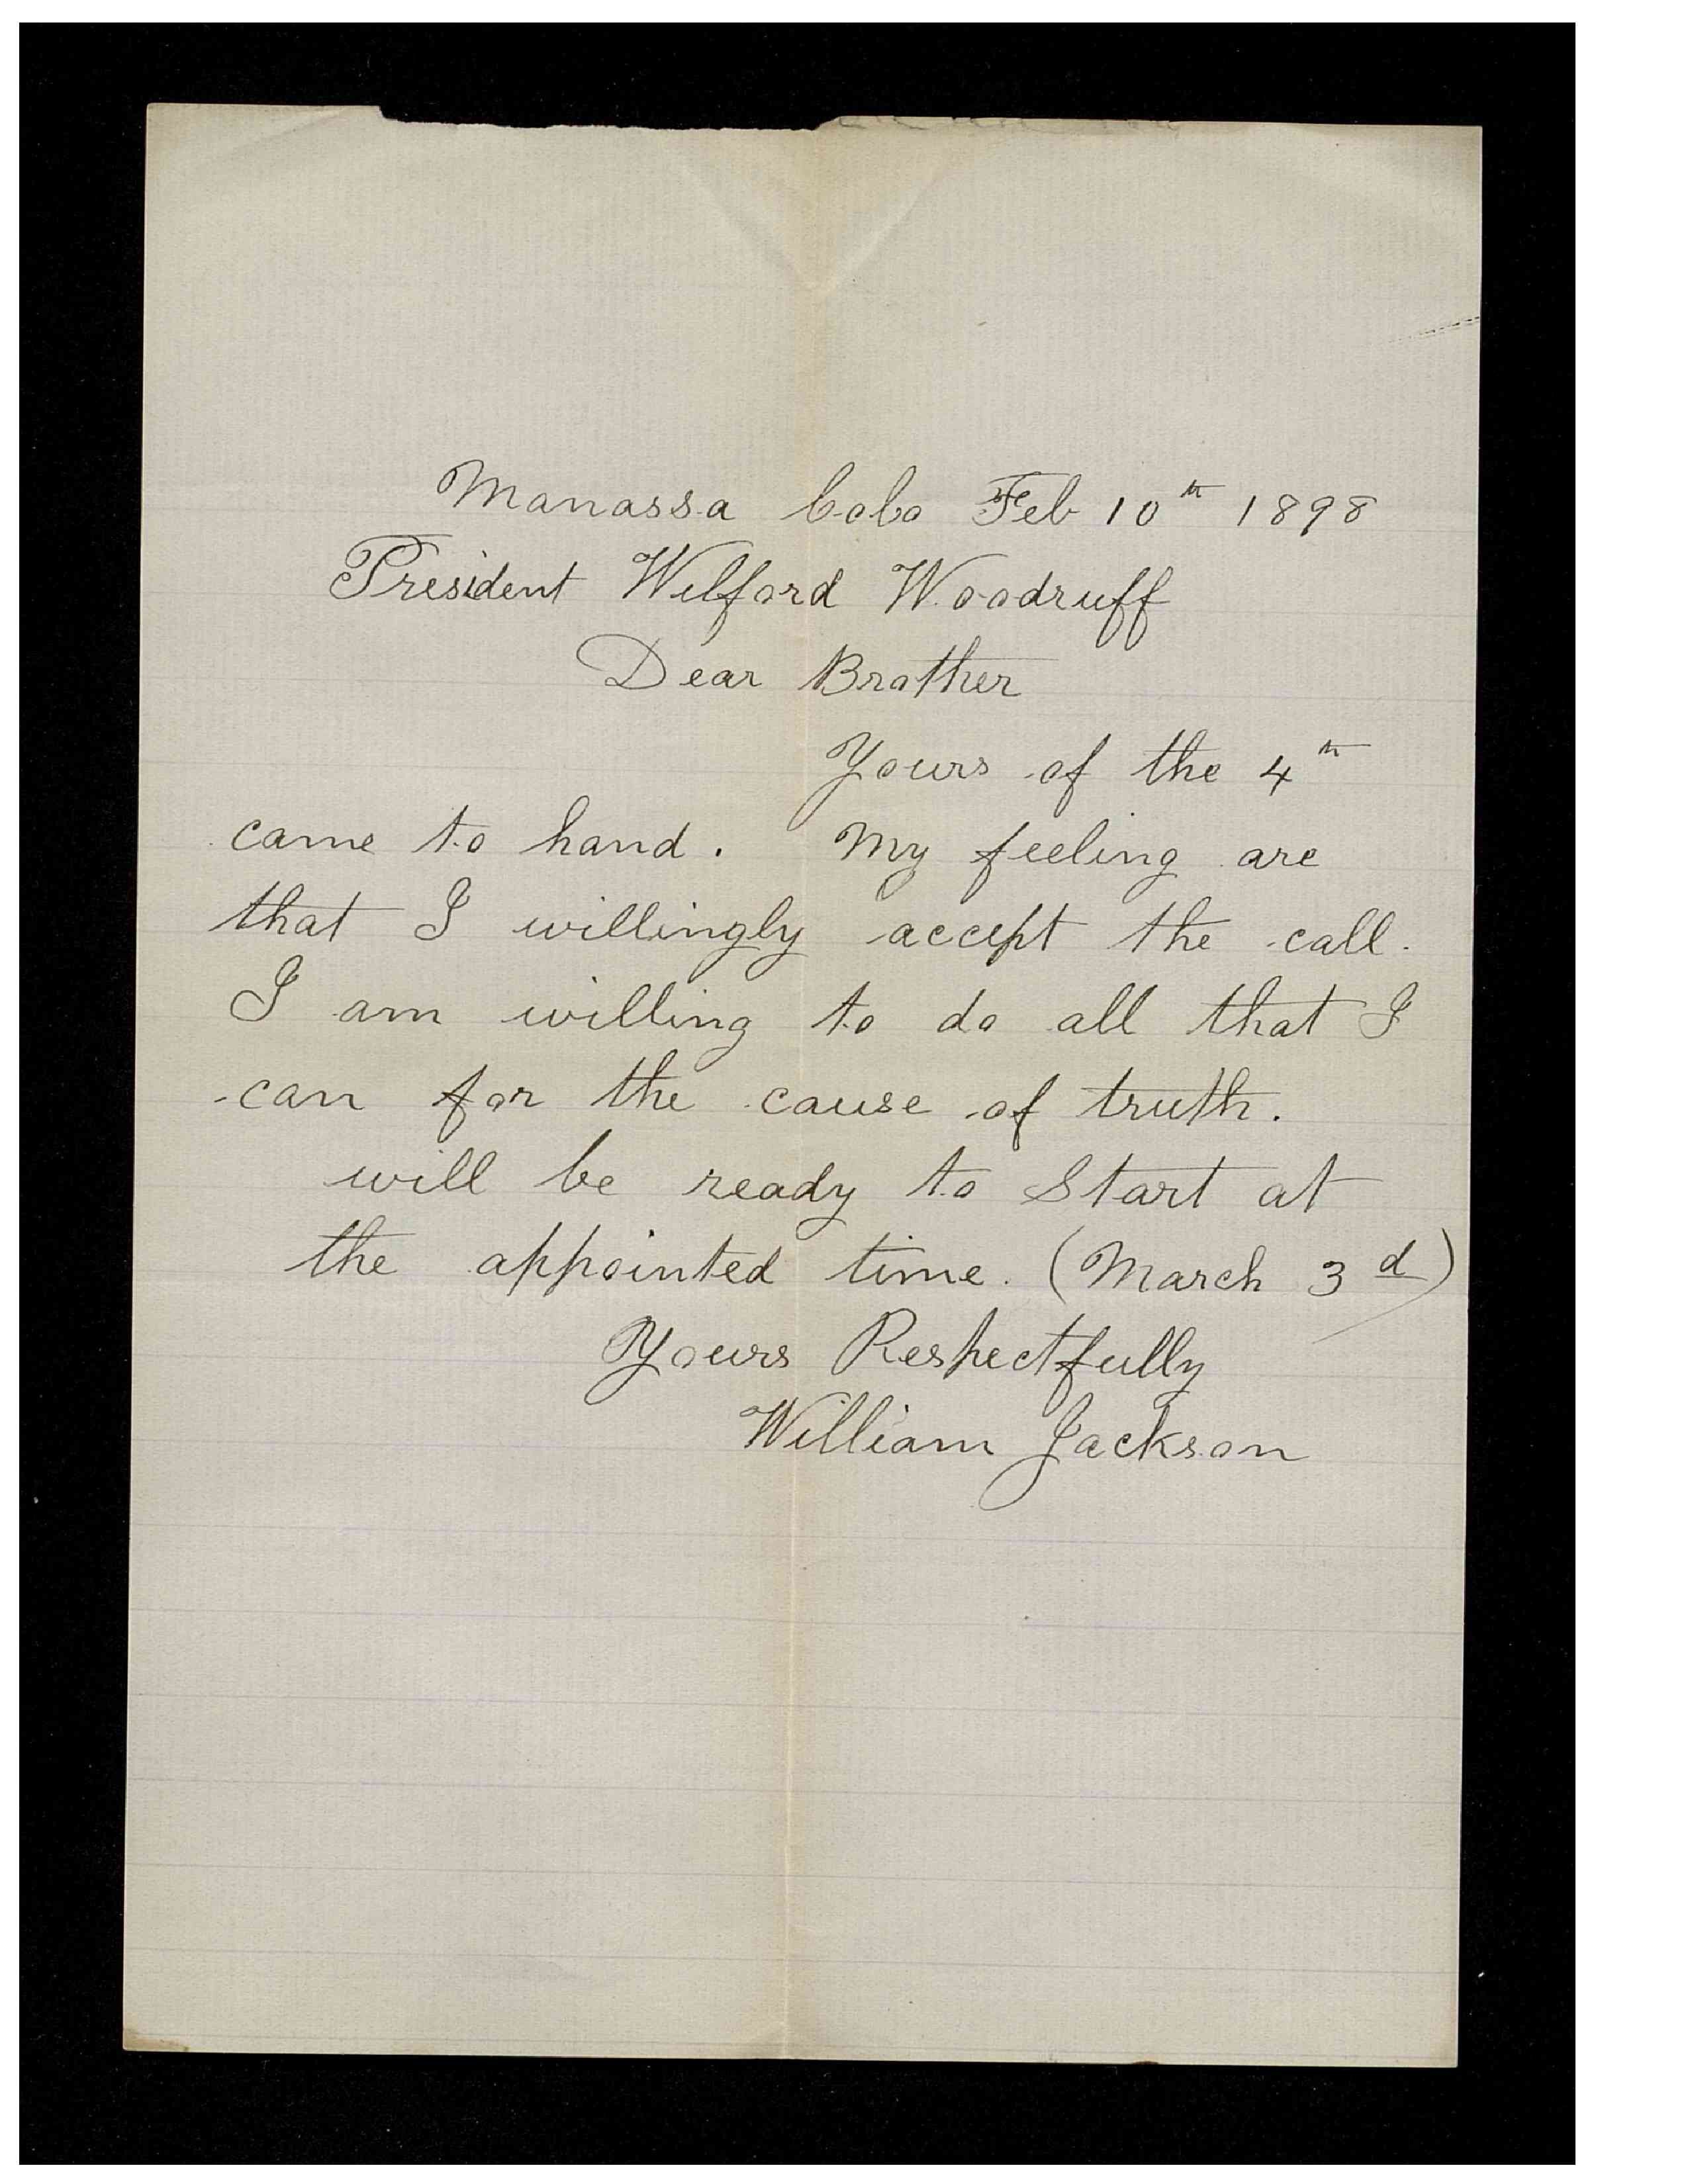 Manassa Colo Feb 10th 1898
President Wilford Woodruff
Dear Brother
Yours of the 4th
came to hand. My feeling are
that I willingly accept the call.
I am willing to do all that I
can for the cause of truth.
will be ready to Start at
the appointed time. (March 3d)
Yours Respectfully
William Jackson